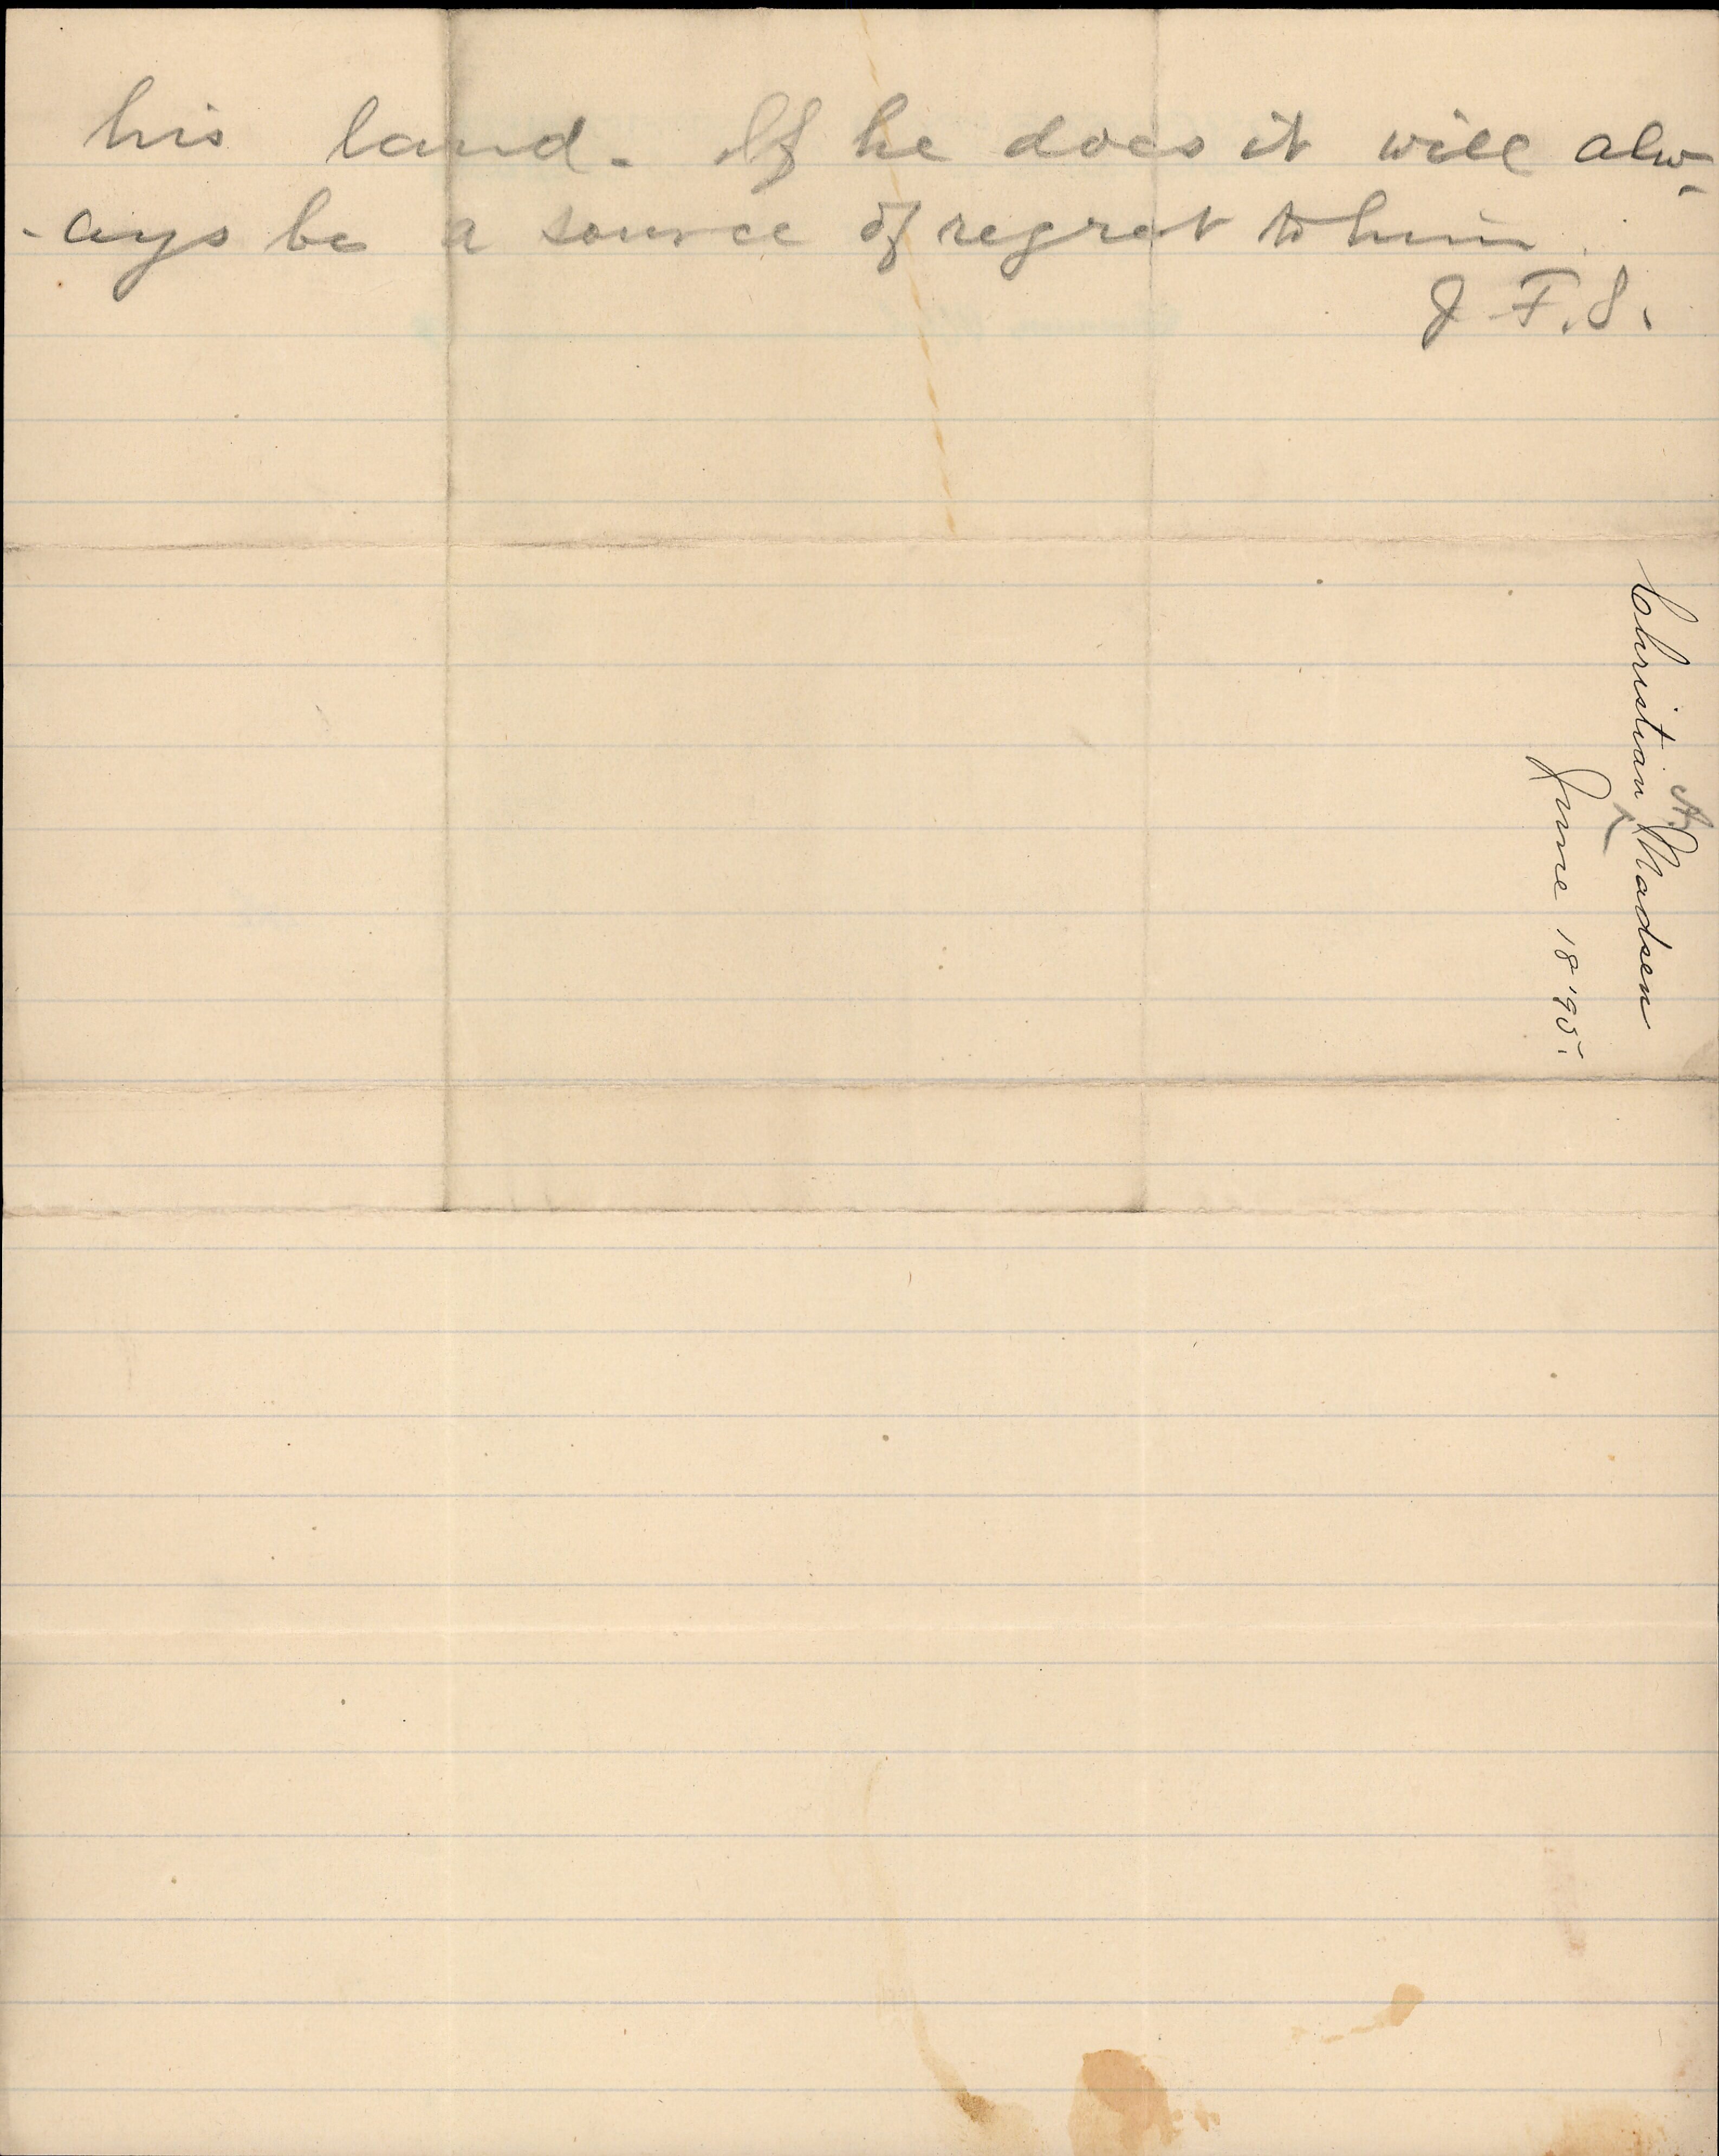 his land. If he does it will alw-
-ays be a source of regret to him.
J. F. S.
Christian A. Madsen
June 18 '95.